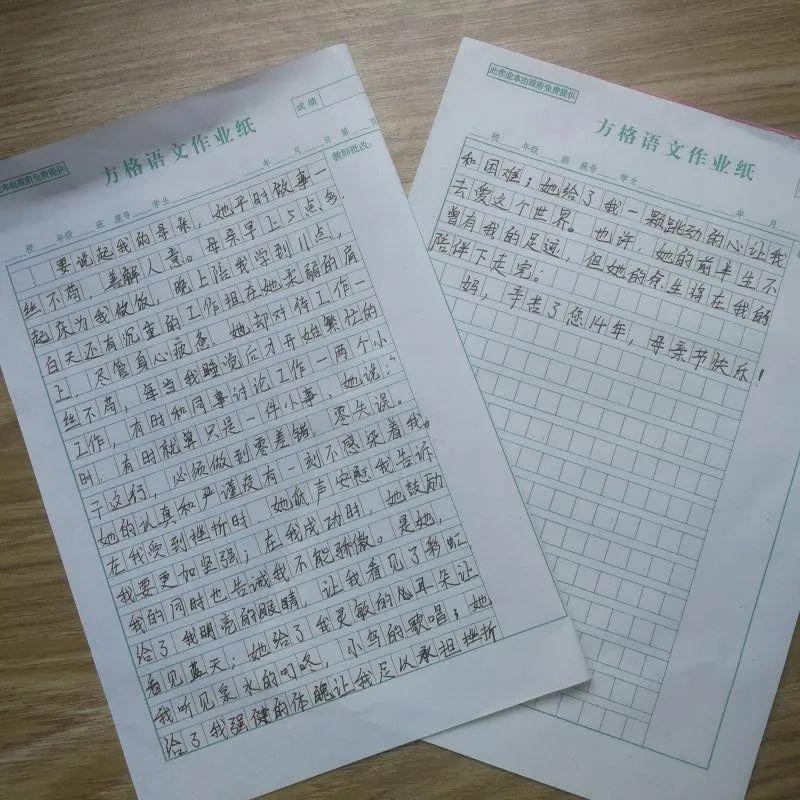 成绩
此作业本由政府免费提供
方格语文作业纸
年 月 日 第 页
校 年级 班 座号 学生
教师批改:
要说起我的母亲,她平时做事一
丝不苟,善解人意。母亲早上5点多
起床为我做饭,晚上陪我学到11点,
白天还有沉重的工作担在她柔弱的肩
上,尽管身心疲惫,她却对待工作一
丝不苟,每当我睡觉后才开始繁忙的
工作,有时和同事讨论工作一两个小
时,有时就算只是一件小事,她说:“
干这行,必须做到零差错,零失误。
她的认真和严谨没有一刻不感染着我。
在我受到挫折时,她低声安慰我告诉
我要更加坚强;在我成功时,她鼓励
我的同时也告诫我不能骄傲。是她,
给了我明亮的眼睛,让我看见了彩虹,
看见蓝天;她给了我灵敏的耳朵让
我听见泉水的叮咚,小鸟的歌唱;她
给了我强健的体魄让我足以承担挫折
此作业本由政府免费提供
方格语文作业纸
校 年级 班 座号 学生 年 月
和困难;她给了我一颗跳动的心让我
去爱这个世界。也许,她的前半生不
曾有我的足迹,但她的余生将在我的
陪伴下走完。
妈,辛苦了您14年,母亲节快乐!